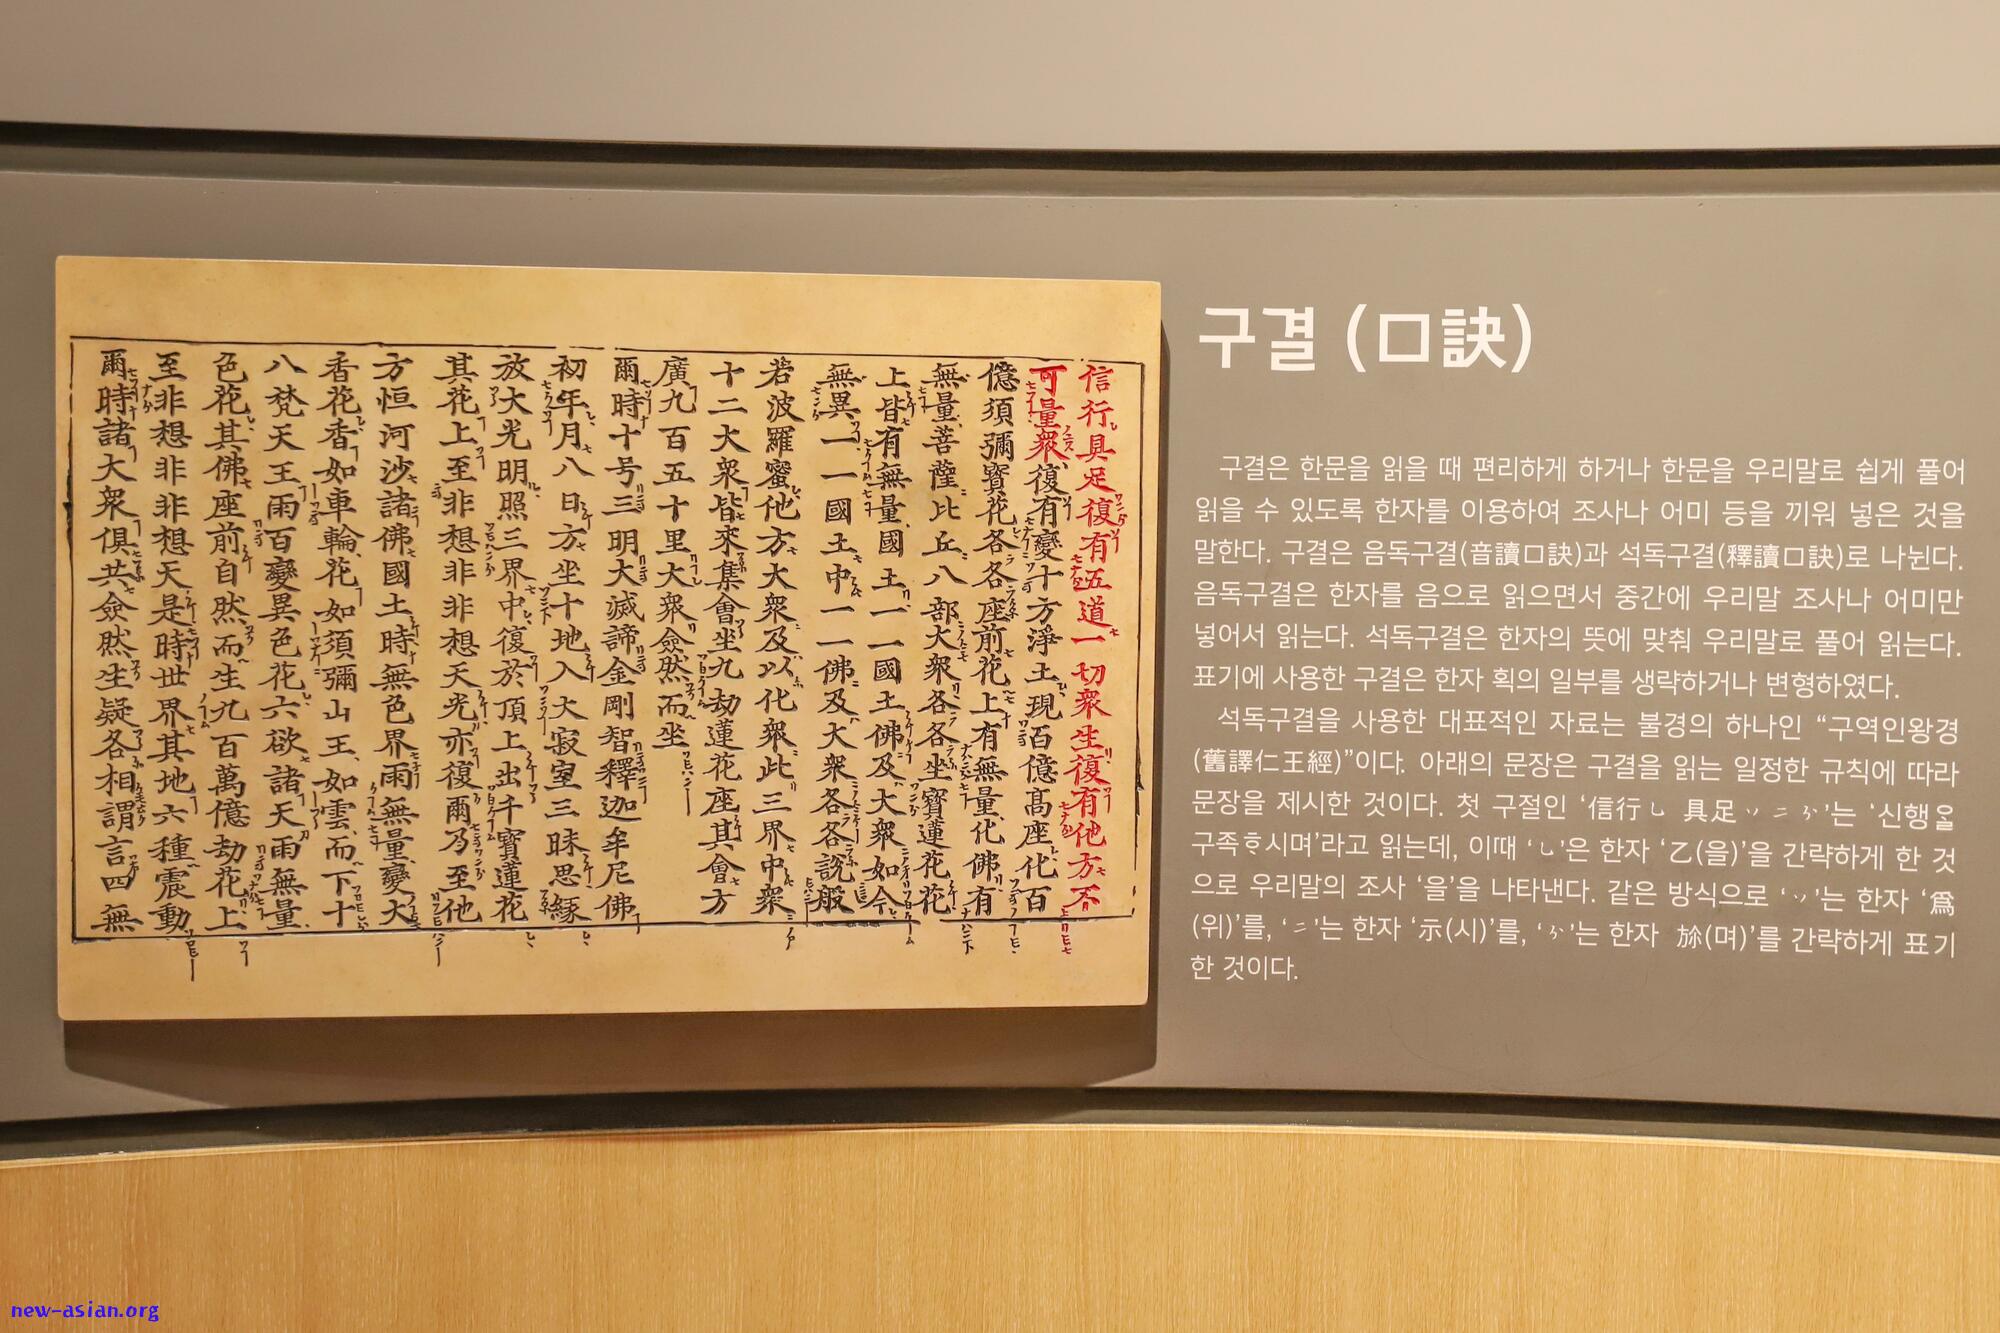 信行具足復有五道一切衆生復有他方不
可量衆復有變十方淨土現百億高座化百
億須彌寶花各各座前花上有無量化佛有
無量菩薩比丘八部大衆各各坐寶蓮花花
上皆有無量國土一一國土佛及大衆如今
無異一一國土中一一佛及大衆各各說般
若波羅蜜他方大衆及以化衆此三界中衆
十二大衆皆來集會坐九劫蓮花座其會方
廣九百五十里大衆僉然而坐
爾時十号三明大滅諦金剛智釋迦牟尼佛
初年月八日方坐十地入大寂室三昧思緣
放大光明照三界中復於頂上出千寶蓮花
其花上至非想非非想天光亦復爾乃至他
方恒河沙諸佛國土時無色界雨無量變大
香花香如車輪花如須彌山王如雲而下十
八梵天王雨百變異色花六欲諸天雨無量
色花其佛座前自然而生九百萬億劫花上
至非想非非想天是時世界其地六種震動
爾時諸大衆俱共僉然生疑各相謂言四無
구결 (口訣)
구결은 한문을 읽을 때 편리하게 하거나 한문을 우리말로 쉽게 풀어
읽을 수 있도록 한자를 이용하여 조사나 어미 등을 끼워 넣은 것을
말한다. 구결은 음독구결(音讀口訣)과 석독구결(釋讀口訣)로 나뉜다.
음독구결은 한자를 음으로 읽으면서 중간에 우리말 조사나 어미만
넣어서 읽는다. 석독구결은 한자의 뜻에 맞춰 우리말로 풀어 읽는다.
표기에 사용한 구결은 한자 획의 일부를 생략하거나 변형하였다.
석독구결을 사용한 대표적인 자료는 불경의 하나인 “구역인왕경
(舊譯仁王經)”이다. 아래의 문장은 구결을 읽는 일정한 규칙에 따라
문장을 제시한 것이다. 첫 구절인 ‘信行乚 具足ソニ゙ケ’는 ‘신행을
구족ᄒᆞ시며’라고 읽는데, 이때 ‘乚’은 한자 ‘乙(을)’을 간략하게 한 것
으로 우리말의 조사 ‘을’을 나타낸다. 같은 방식으로 ‘ソ’는 한자 ‘爲
(위)’를, ‘ニ’는 한자 ‘示(시)’를, ‘ケ’는 한자 旀(며)’를 간략하게 표기
한 것이다.
new-asian.org